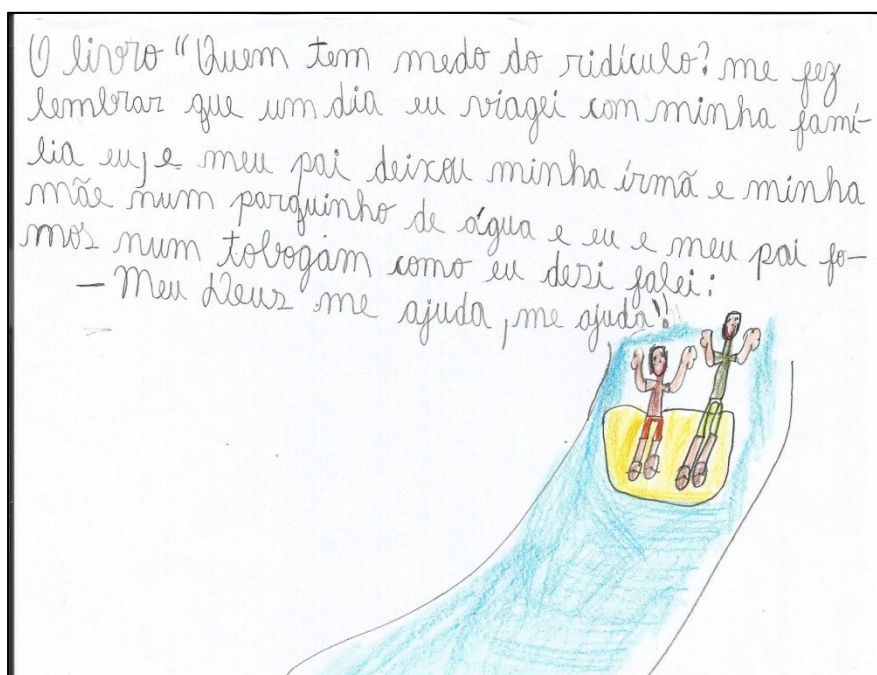 O livro "Quem tem medo do ridículo? me fez
lembrar que um dia eu viagei com minha famí-
lia eu, e meu pai deixou minha irmã e minha
mãe num parquinho de água e eu e meu pai fo-
mos num tobogãm como eu desi falei:
— Meu Deus me ajuda, me ajuda!!